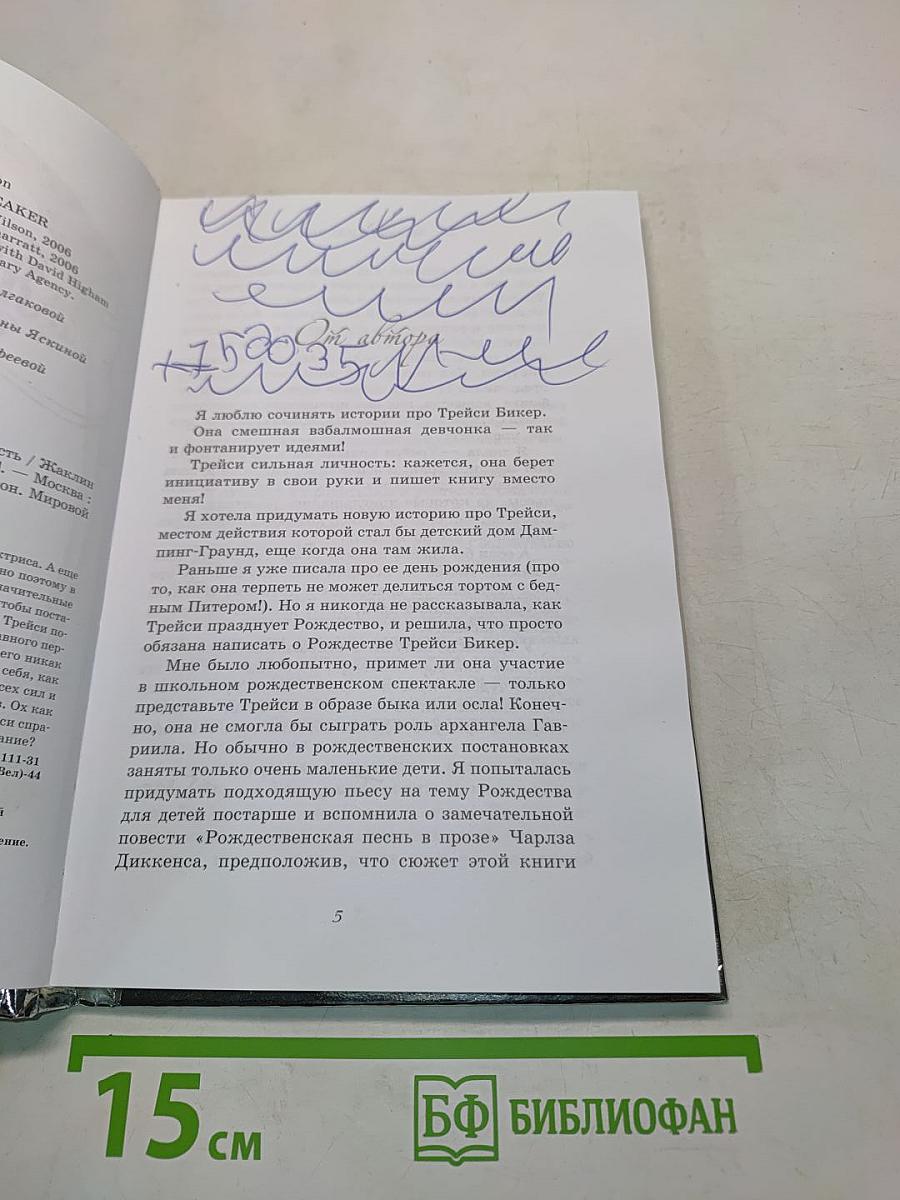 on
EAKER
Wilson, 2006
harratt, 2006
with David Higham
ary Agency.
лгаковой
ны Яскиной
феевой
сть / Жаклин
]. — Москва :
он. Мировой
ктриса. А еще
но поэтому в
начительные
тобы поста-
Трейси по-
авного пер-
его никак
себя, как
сех сил и
. Ох как
си спра-
ание?
111-31
Вел)-44
ение.
От автора
Я люблю сочинять истории про Трейси Бикер.
Она смешная взбалмошная девчонка — так
и фонтанирует идеями!
Трейси сильная личность: кажется, она берет
инициативу в свои руки и пишет книгу вместо
меня!
Я хотела придумать новую историю про Трейси,
местом действия которой стал бы детский дом Дам-
пинг-Граунд, еще когда она там жила.
Раньше я уже писала про ее день рождения (про
то, как она терпеть не может делиться тортом с бед-
ным Питером!). Но я никогда не рассказывала, как
Трейси празднует Рождество, и решила, что просто
обязана написать о Рождестве Трейси Бикер.
Мне было любопытно, примет ли она участие
в школьном рождественском спектакле — только
представьте Трейси в образе быка или осла! Конеч-
но, она не смогла бы сыграть роль архангела Гав-
риила. Но обычно в рождественских постановках
заняты только очень маленькие дети. Я попыталась
придумать подходящую пьесу на тему Рождества
для детей постарше и вспомнила о замечательной
повести «Рождественская песнь в прозе» Чарлза
Диккенса, предположив, что сюжет этой книги
5
15 см
БФ БИБЛИОФАН